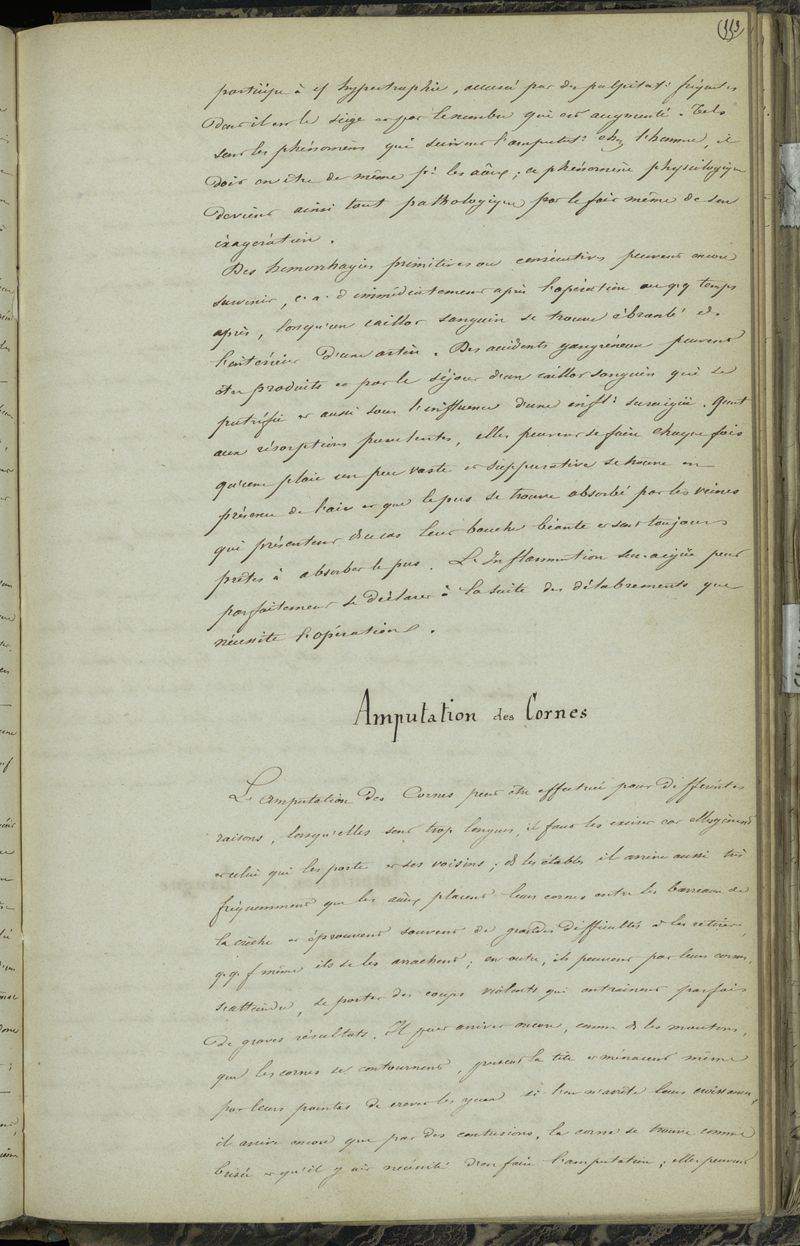 113
participe à  hypertrophie, accusé par des palpitat: fréqtes
Dont il est le siège et par le nombre qui est augmenté. Tels
sont les phénomènes qui suivent l'amputat: chez l'homme, il
doit en être de même pr les aaux; ce phénomène physiologique
devient ainsi tout pathologique par le fait même de son
éxagération.
Des hémorrhagies primitives ou consécutives peuvent encore
survenir, c. a. d immédiatement après l'opération ou qq temps
après, lorsqu'un caillot sanguin se trouve ébranlé ds
l'intérieur d'une artère. Des accidents gangréneux peuvent
être produits et par le séjour d'un caillot sanguin qui se
putréfie et aussi sous l'influence d'une infl: suraigüe. Quant
aux résorptions purulentes, elles peuvent se faire chaque fois
qu'une plaie un peu vaste et suppurative se trouve en
présence de l'air et que le pus se trouve absorbé par les veines
qui présentent ds ce cas leur bouche béante et sont toujours
prêtes à absorber le pus. L'Inflammation sur-aigüe peut
parfaitement se déclarer à la suite des délabrements que
nécessite l'opération.
Amputation des Cornes
L'amputation des Cornes peut être effectuée pour différentes
raisons, lorsqu'elles sont trop longues, il faut les exciser car elles gènent
et celui qui les porte et ses voisins; ds les étables il arrive aussi très
fréquemment que les aaux placent leurs cornes entre les barreaux de
la crèche et éprouvent souvent de grandes difficultés à les retirer,
qq f même ils se les arrachent; en outre, ils peuvent par leurs cornes,
s'atteindre, se porter des coups violents qui entrainent parfois
de graves résultats. Il peut arriver encore, comme ds les moutons,
que les cornes se contournent, pressent la tête et menacent même
par leurs pointes de crever les yeux si l'on n'arrête leur croissance,
il arrive encore que par des contusions, la corne se trouve comme
brisée et qu'il y ait nécessité d'en faire l'amputation; elles peuvent